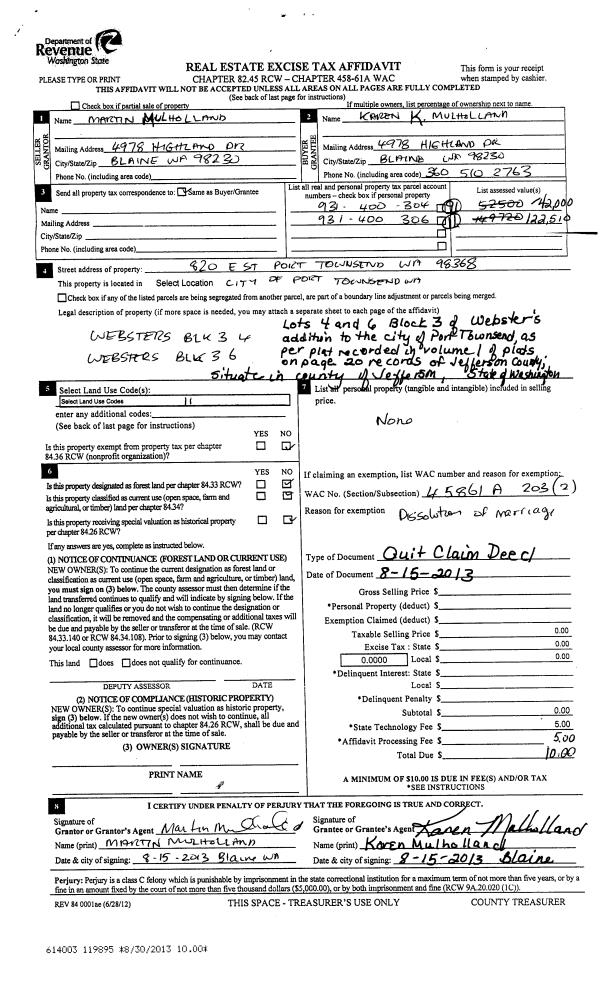 Department of
Revenue
Washington State
REAL ESTATE EXCISE TAX AFFIDAVIT
This form is your receipt
PLEASE TYPE OR PRINT
CHAPTER 82.45 RCW – CHAPTER 458-61A WAC
when stamped by cashier.
THIS AFFIDAVIT WILL NOT BE ACCEPTED UNLESS ALL AREAS ON ALL PAGES ARE FULLY COMPLETED
(See back of last page for instructions)
Check box if partial sale of property
If multiple owners, list percentage of ownership next to name.
1 Name MARTIN MULHOLLAND
2 Name KAREN K. MULHOLLAND
SELLER GRANTOR
BUYER GRANTEE
Mailing Address 4978 HIGHLAND DR
Mailing Address 4978 HIGHLAND DR
City/State/Zip BLAINE WA 98230
City/State/Zip BLAINE WA 98230
Phone No. (including area code)
Phone No. (including area code) 360 510 2763
3 Send all property tax correspondence to: Same as Buyer/Grantee
List all real and personal property tax parcel account
numbers – check box if personal property
List assessed value(s)
Name
931-400-304 52500 42,000
Mailing Address
931-400 306 149720 122,510
City/State/Zip
Phone No. (including area code)
4 Street address of property: 820 E ST PORT TOWNSEND WA 98368
This property is located in Select Location CITY OF PORT TOWNSEND WA
Check box if any of the listed parcels are being segregated from another parcel, are part of a boundary line adjustment or parcels being merged.
Legal description of property (if more space is needed, you may attach a separate sheet to each page of the affidavit)
WEBSTERS BLK 3 4
WEBSTERS BLK 3 6
Lots 4 and 6 Block 3 of Webster's
addition to the city of Port Townsend, as
per plat recorded in volume 1 of plats
on page 20 records of Jefferson County,
situate in county of Jefferson, State of Washington
5 Select Land Use Code(s):
Select Land Use Codes 11
enter any additional codes:
(See back of last page for instructions)
YES NO
Is this property exempt from property tax per chapter
84.36 RCW (nonprofit organization)?
7 List all personal property (tangible and intangible) included in selling
price.
None
6
YES NO
Is this property designated as forest land per chapter 84.33 RCW?
Is this property classified as current use (open space, farm and
agricultural, or timber) land per chapter 84.34?
Is this property receiving special valuation as historical property
per chapter 84.26 RCW?
If any answers are yes, complete as instructed below.
(1) NOTICE OF CONTINUANCE (FOREST LAND OR CURRENT USE)
NEW OWNER(S): To continue the current designation as forest land or
classification as current use (open space, farm and agriculture, or timber) land,
you must sign on (3) below. The county assessor must then determine if the
land transferred continues to qualify and will indicate by signing below. If the
land no longer qualifies or you do not wish to continue the designation or
classification, it will be removed and the compensating or additional taxes will
be due and payable by the seller or transferor at the time of sale. (RCW
84.33.140 or RCW 84.34.108). Prior to signing (3) below, you may contact
your local county assessor for more information.
This land does does not qualify for continuance.
DEPUTY ASSESSOR DATE
(2) NOTICE OF COMPLIANCE (HISTORIC PROPERTY)
NEW OWNER(S): To continue special valuation as historic property,
sign (3) below. If the new owner(s) does not wish to continue, all
additional tax calculated pursuant to chapter 84.26 RCW, shall be due and
payable by the seller or transferor at the time of sale.
(3) OWNER(S) SIGNATURE
PRINT NAME
If claiming an exemption, list WAC number and reason for exemption:
WAC No. (Section/Subsection) 45861A 203(2)
Reason for exemption
Dissolution of marriage
Type of Document Quit Claim Deed
Date of Document 8-15-2013
Gross Selling Price $
*Personal Property (deduct) $
Exemption Claimed (deduct) $
Taxable Selling Price $ 0.00
Excise Tax : State $ 0.00
0.0000 Local $ 0.00
*Delinquent Interest: State $
Local $
*Delinquent Penalty $
Subtotal $ 0.00
*State Technology Fee $ 5.00
*Affidavit Processing Fee $ 5.00
Total Due $ 10.00
A MINIMUM OF $10.00 IS DUE IN FEE(S) AND/OR TAX
*SEE INSTRUCTIONS
8 I CERTIFY UNDER PENALTY OF PERJURY THAT THE FOREGOING IS TRUE AND CORRECT.
Signature of
Grantor or Grantor's Agent Martin Mulholland
Name (print) MARTIN MULHOLLAND
Date & city of signing: 8-15-2013 Blaine WA
Signature of
Grantee or Grantee's Agent Karen Mulholland
Name (print) Karen Mulholland
Date & city of signing: 8-15-2013 Blaine
Perjury: Perjury is a class C felony which is punishable by imprisonment in the state correctional institution for a maximum term of not more than five years, or by a
fine in an amount fixed by the court of not more than five thousand dollars ($5,000.00), or by both imprisonment and fine (RCW 9A.20.020 (1C)).
REV 84 0001ae (6/28/12)
THIS SPACE - TREASURER'S USE ONLY
COUNTY TREASURER
614003 119895 *8/30/2013 10.00*